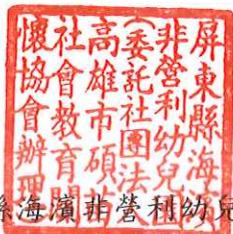 屏東縣海濱
非營利幼兒園
(委託社團法人
高雄市碩
社會教育關
懷協會辦理
縣海濱非營利幼兒